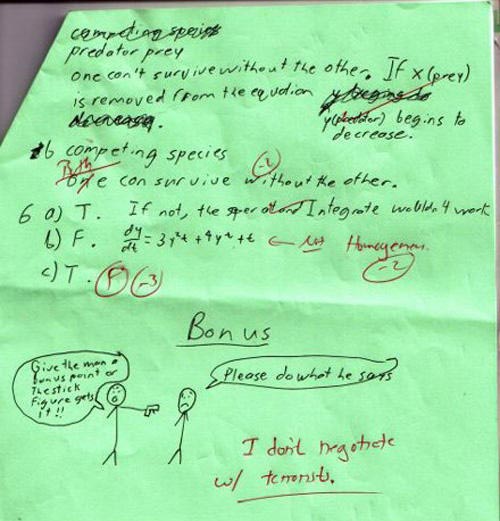 competing species
predator prey
one can't survive without the other. If x(prey)
is removed from the equation y begins to
decrease. y(predator) begins to
decrease.
b competing species
Both
one can survive without the other.
-2
6 a) T. If not, the operator and Integrate wouldn't work
b) F. dy/dt = 3y²t + 4y²t + t ← not Homogeneous.
-2
c) T. F -3
Bonus
Give the man a
bonus point or
the stick
figure gets
it!!
Please do what he says
I don't negotiate
w/ terrorists.